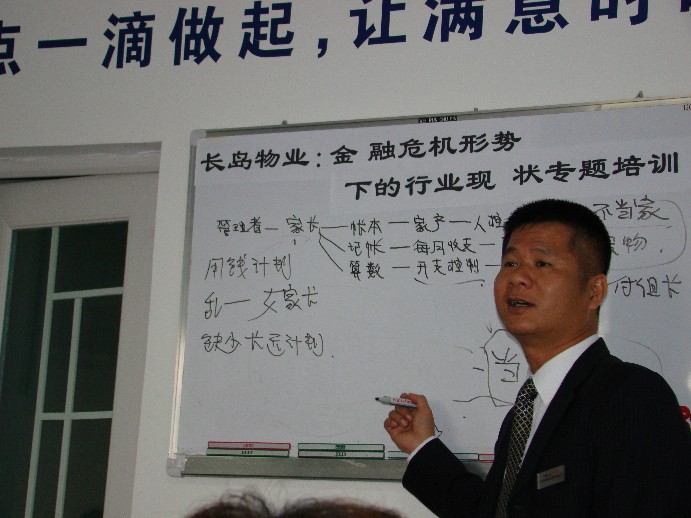 点一滴做起，让满意的
长岛物业：金融危机形势
下的行业现状专题培训
管理者—家长—帐本—家产—人
不当家
记帐—每月收支—
物．
用钱计划
算数—开支控制—
付组长
乱—女家长
缺少长远计划．
当